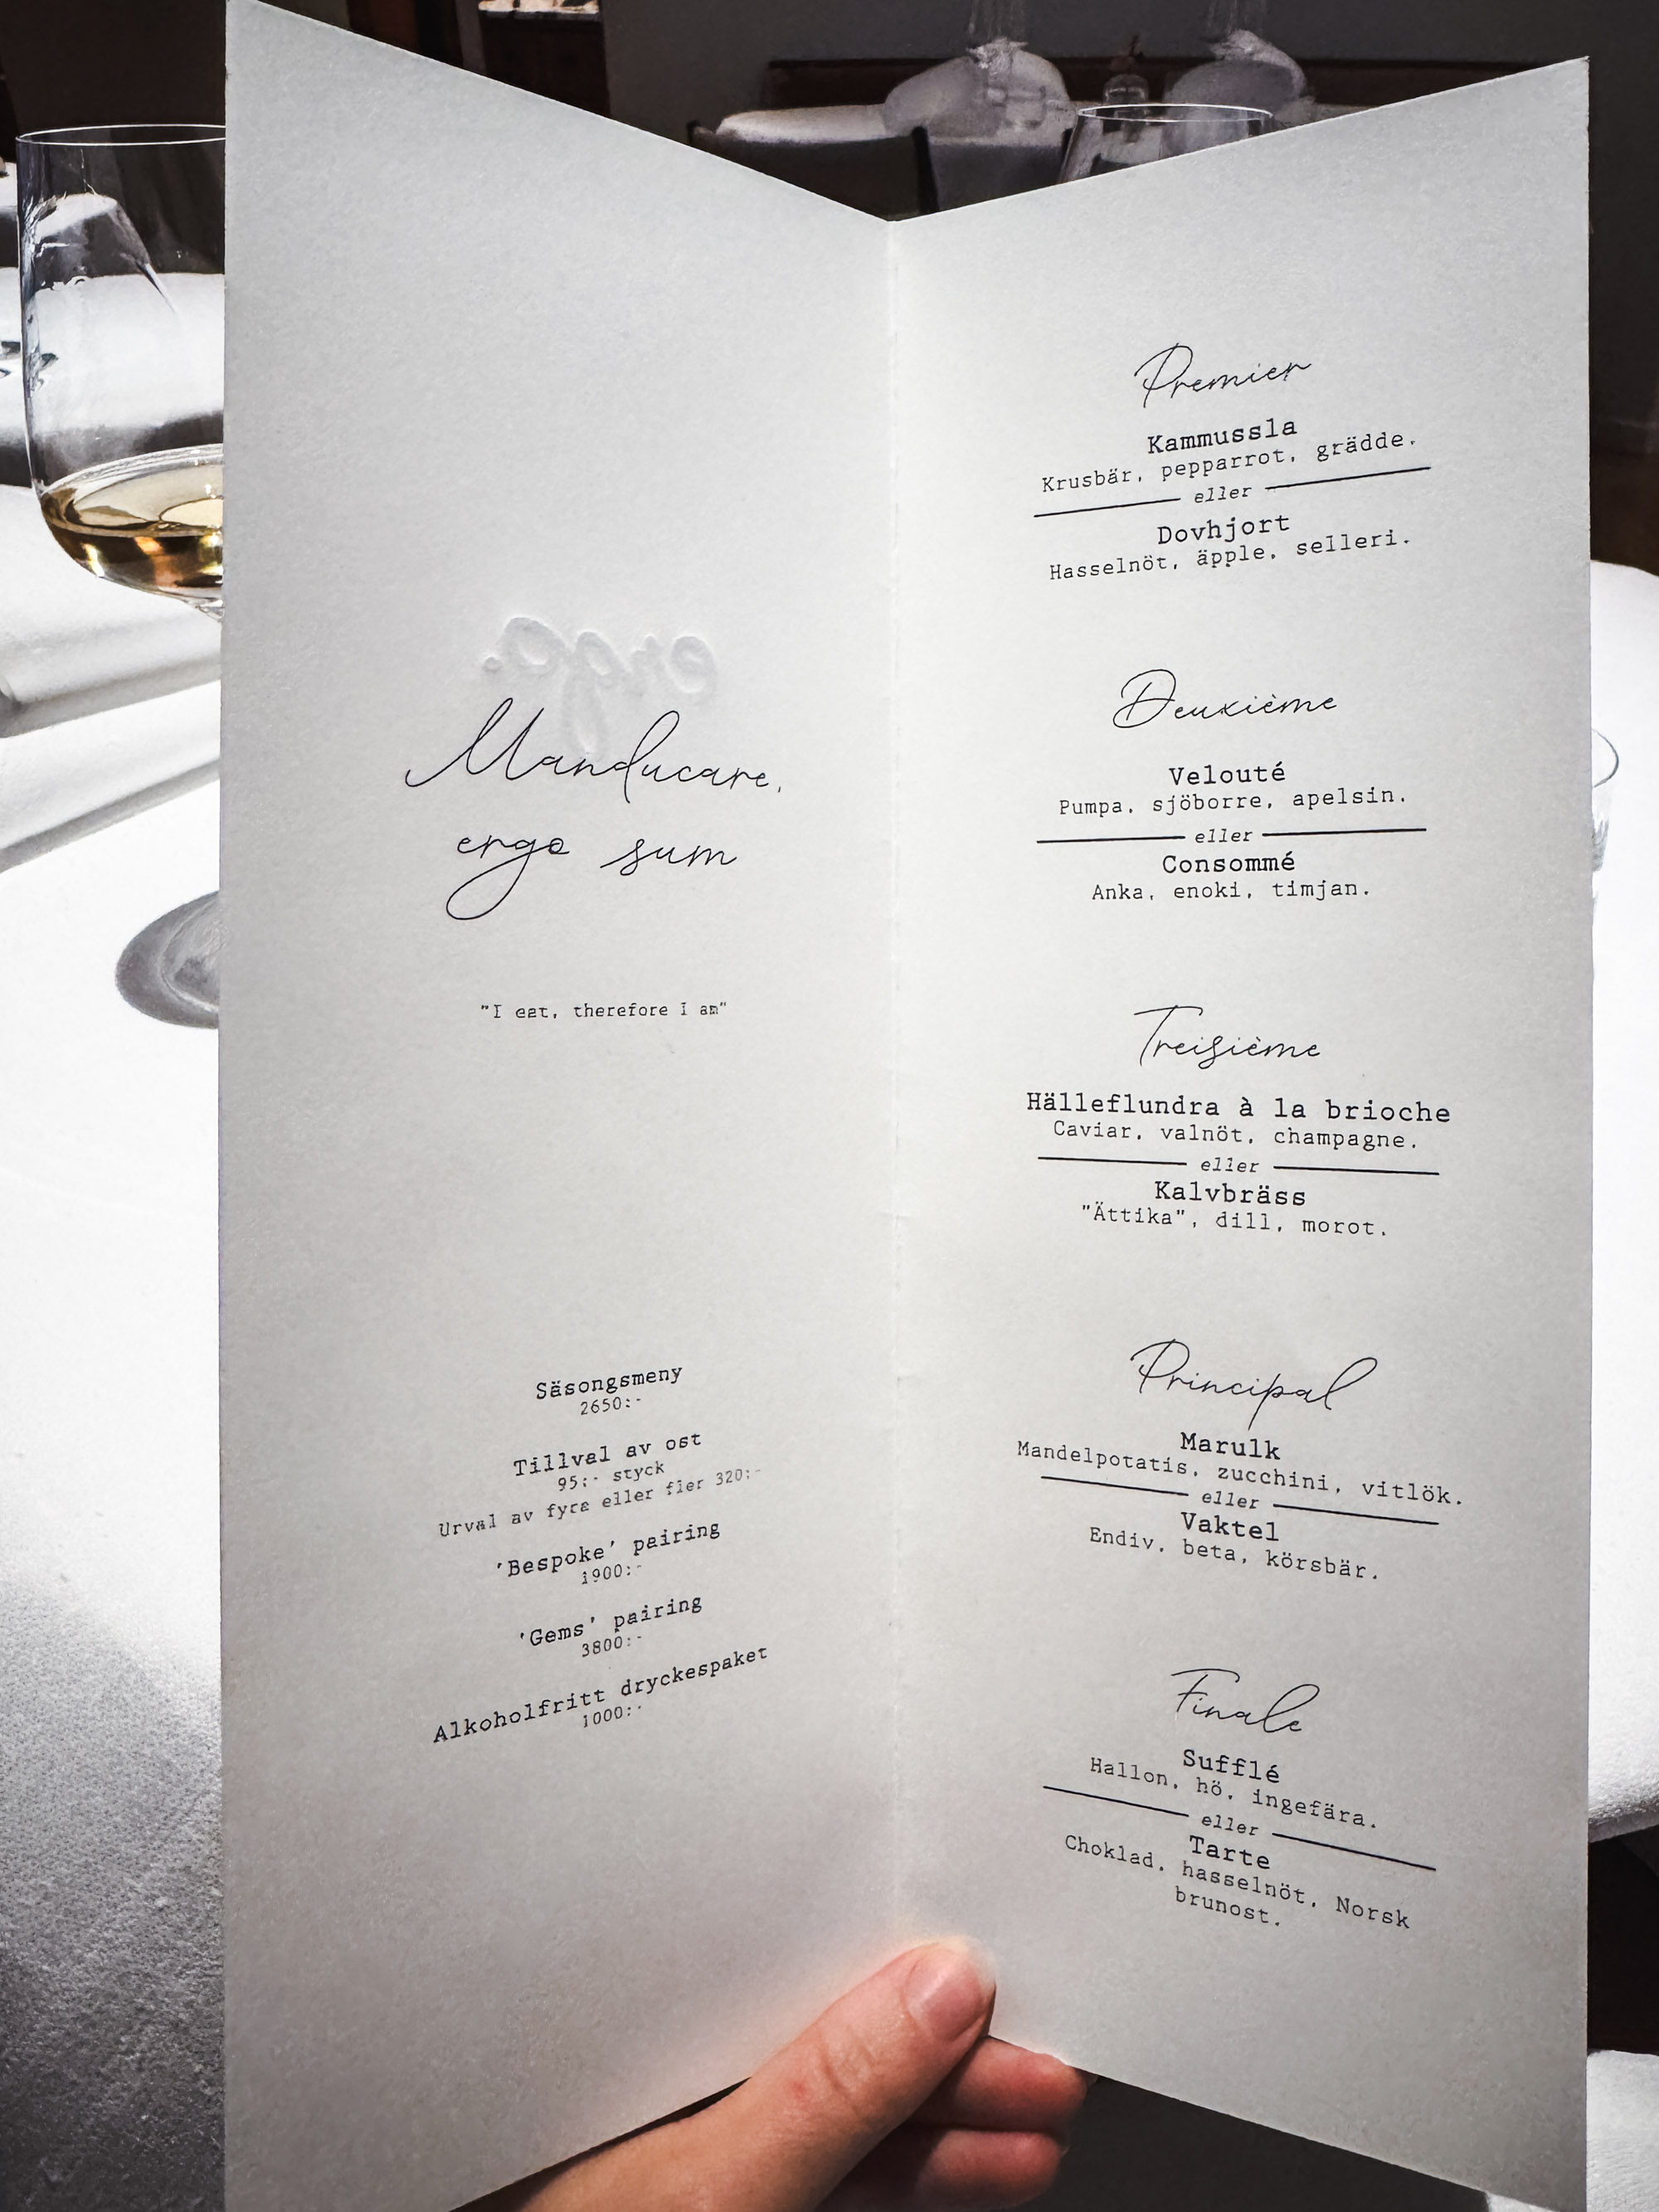 ergo.
Manducare,
ergo sum
"I eat, therefore I am"
Säsongsmeny
2650:-
Tillval av ost
95:- styck
Urval av fyra eller fler 320:-
'Bespoke' pairing
1900:-
'Gems' pairing
3800:-
Alkoholfritt dryckespaket
1000:-
Premier
Kammussla
Krusbär, pepparrot, grädde.
eller
Dovhjort
Hasselnöt, äpple, selleri.
Deuxième
Velouté
Pumpa, sjöborre, apelsin.
eller
Consommé
Anka, enoki, timjan.
Treisième
Hälleflundra à la brioche
Caviar, valnöt, champagne.
eller
Kalvbräss
"Ättika", dill, morot.
Principal
Marulk
Mandelpotatis, zucchini, vitlök.
eller
Vaktel
Endiv, beta, körsbär.
Finale
Sufflé
Hallon, hö, ingefära.
eller
Tarte
Choklad, hasselnöt, Norsk
brunost.